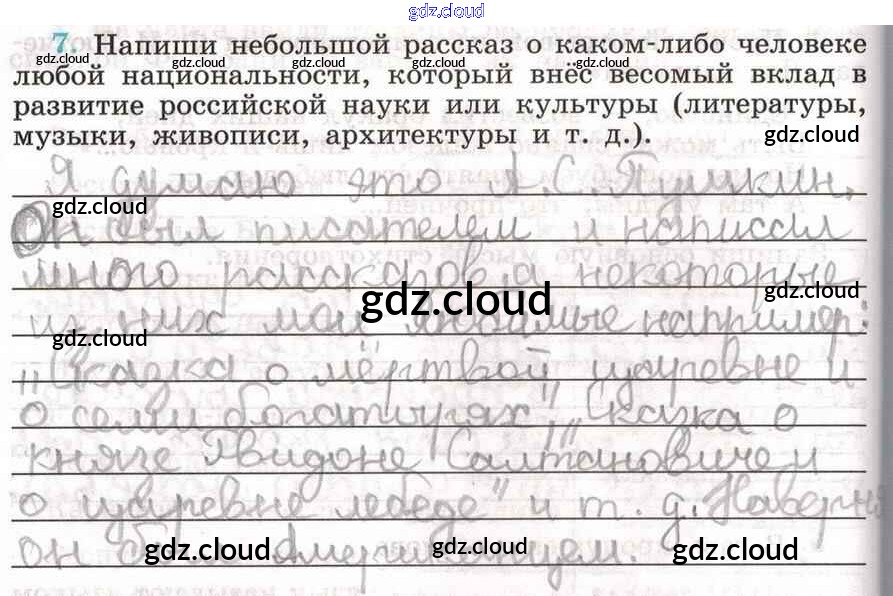 gdz.cloud
7. Напиши небольшой рассказ о каком-либо человеке
gdz.cloud gdz.cloud gdz.cloud gdz.cloud gdz.cloud
любой национальности, который внёс весомый вклад в
развитие российской науки или культуры (литературы,
музыки, живописи, архитектуры и т. д.).
gdz.cloud
Я думаю это А.С.Пушкин.
gdz.cloud
Он был писателем и написал
много рассказов а некоторые
gdz.cloud
gdz.cloud
из них мои любимые например:
gdz.cloud
„Сказка о мёртвой царевне и
о семи богатырях", „Сказка о
князе Гвидоне Салтановиче и
о царевне лебеде" и т. д. Наверн
он был Американцем.
gdz.cloud gdz.cloud gdz.cloud